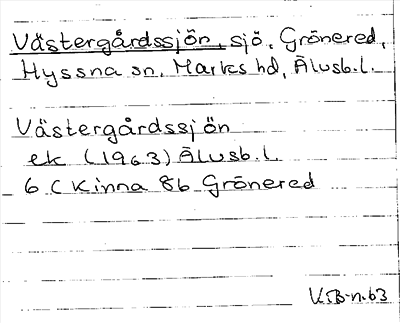 Västergårdssjön, sjö, Grönered,
Hyssna sn, Marks hd, Älvsb. l.
Västergårdssjön
ek (1963) Älvsb. l.
6 C Kinna 8b Grönered